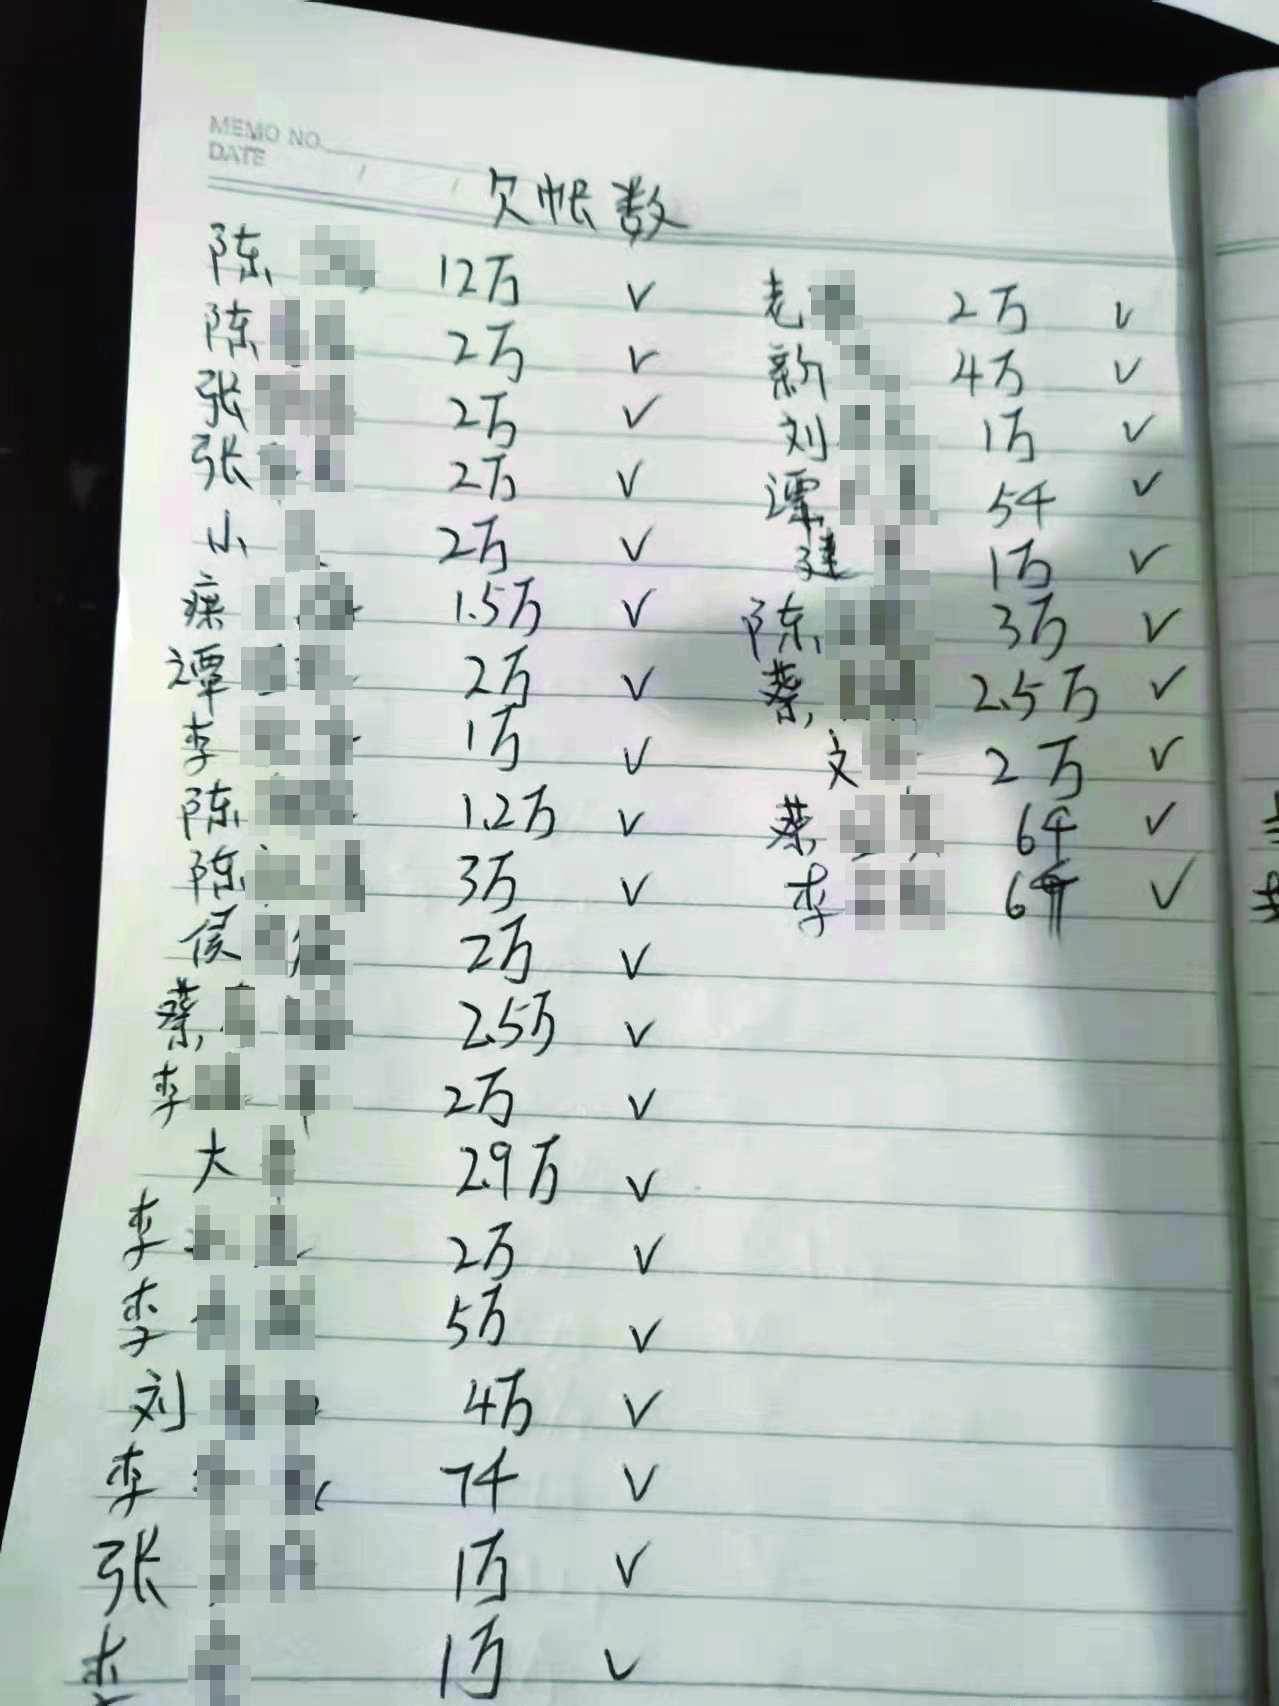 MEMO NO.
DATE / /
欠帐数
陈 12万 ✓
陈 2万 ✓
张 2万 ✓
张 2万 ✓
小 2万 ✓
瘝 1.5万 ✓
谭 2万 ✓
李 1万 ✓
陈 1.2万 ✓
陈 3万 ✓
侯 2万 ✓
蔡 2.5万 ✓
李 2万 ✓
大 2.9万 ✓
李 2万 ✓
李 5万 ✓
刘 4万 ✓
李 7千 ✓
张 1万 ✓
李 1万 ✓
老 2万 ✓
新 4万 ✓
刘 1万 ✓
谭 5千 ✓
建 1万 ✓
陈 3万 ✓
蔡 2.5万 ✓
文 2万 ✓
蔡 6千 ✓
李 6千 ✓